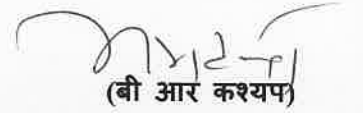 (बी आर कश्यप)